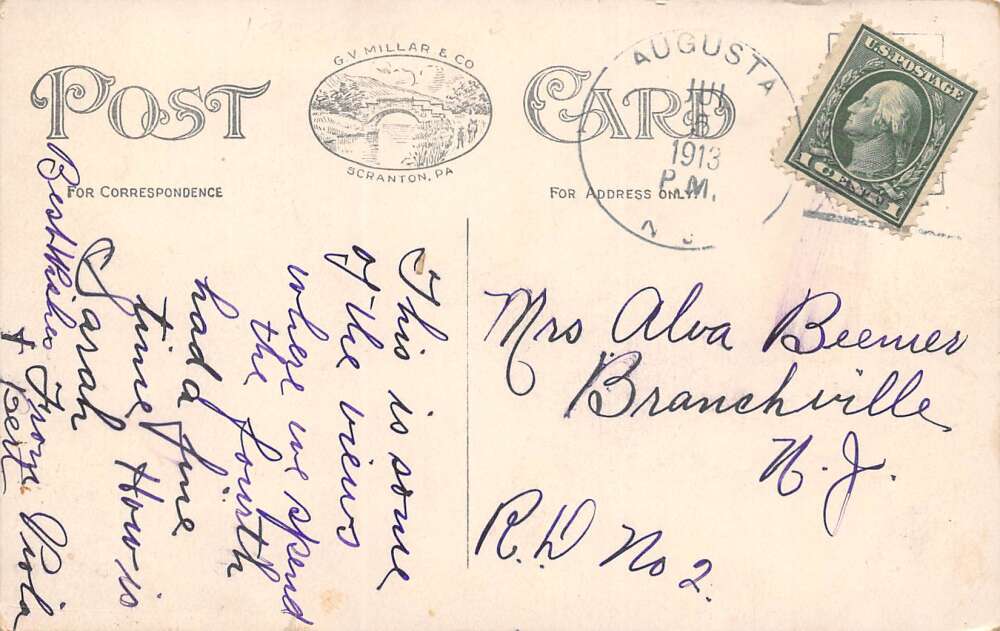 POST CARD
G. V. MILLAR & CO
SCRANTON, PA
FOR CORRESPONDENCE
FOR ADDRESS ONLY.
AUGUSTA
JUL
6
1913
P.M.
N J
U.S. POSTAGE
1 CENTS 1
This is some
of the views
where we spend
the fourth
had a fine
time How is
Sarah
Best Wishes From Viola
+ Bert
Mrs Alva Beemer
Branchville
N. J.
R. D No 2.